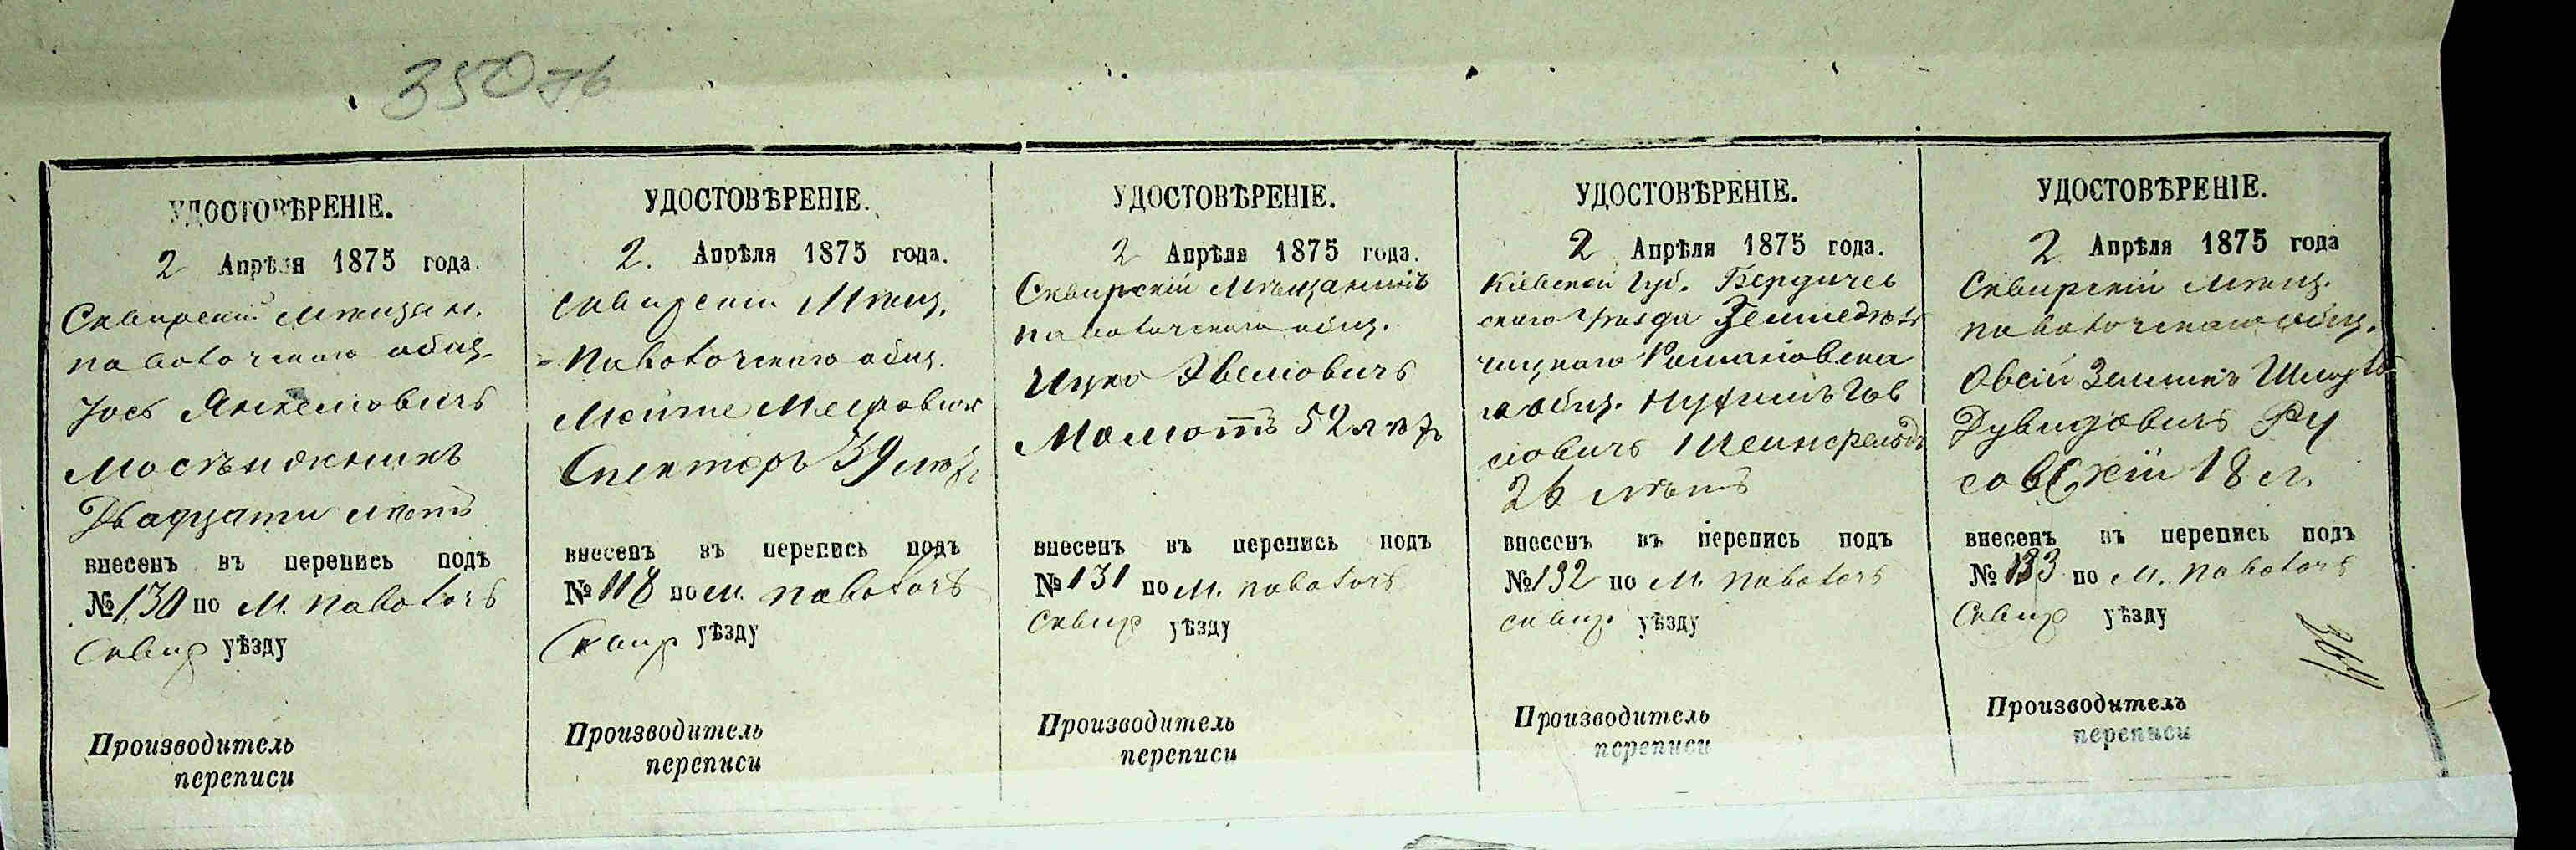 350
УДОСТОВѢРЕНІЕ.
2 Апрѣля 1875 года.
Сквирскій мѣщан.
паволочскаго общ.
Іось Янкелювичъ
Двадцати лѣтъ
внесенъ въ перепись подъ
№ 130 по м. паволочѣ
Сквир уѣзду
Производитель
переписи
УДОСТОВѢРЕНІЕ.
2. Апрѣля 1875 года.
Сквирскій Мѣщ.
Паволочскаго общ.
Мойше Меировичъ
Спекторъ 39 лѣтъ
внесенъ въ перепись подъ
№ 118 по м. паволочѣ
Сквир уѣзду
Производитель
переписи
УДОСТОВѢРЕНІЕ.
2 Апрѣля 1875 года.
Сквирскій Мѣщанинъ
паволочскаго общ.
Ицко
52 лѣтъ
внесенъ въ перепись подъ
№ 131 по м. паволочѣ
Сквир уѣзду
Производитель
переписи
УДОСТОВѢРЕНІЕ.
2 Апрѣля 1875 года.
Кіевской Губ. Бердичев
скаго уѣзда
го общ.
26 лѣтъ
внесенъ въ перепись подъ
№ 132 по м. паволочѣ
сквир. уѣзду
Производитель
переписи
УДОСТОВѢРЕНІЕ.
2 Апрѣля 1875 года
Сквирскій мѣщ.
паволочскаго общ.
Овсій
Дувидовичъ Ру
совскій 18 л.
внесенъ въ перепись подъ
№ 133 по м. паволочѣ
Сквир уѣзду
Производитель
переписи